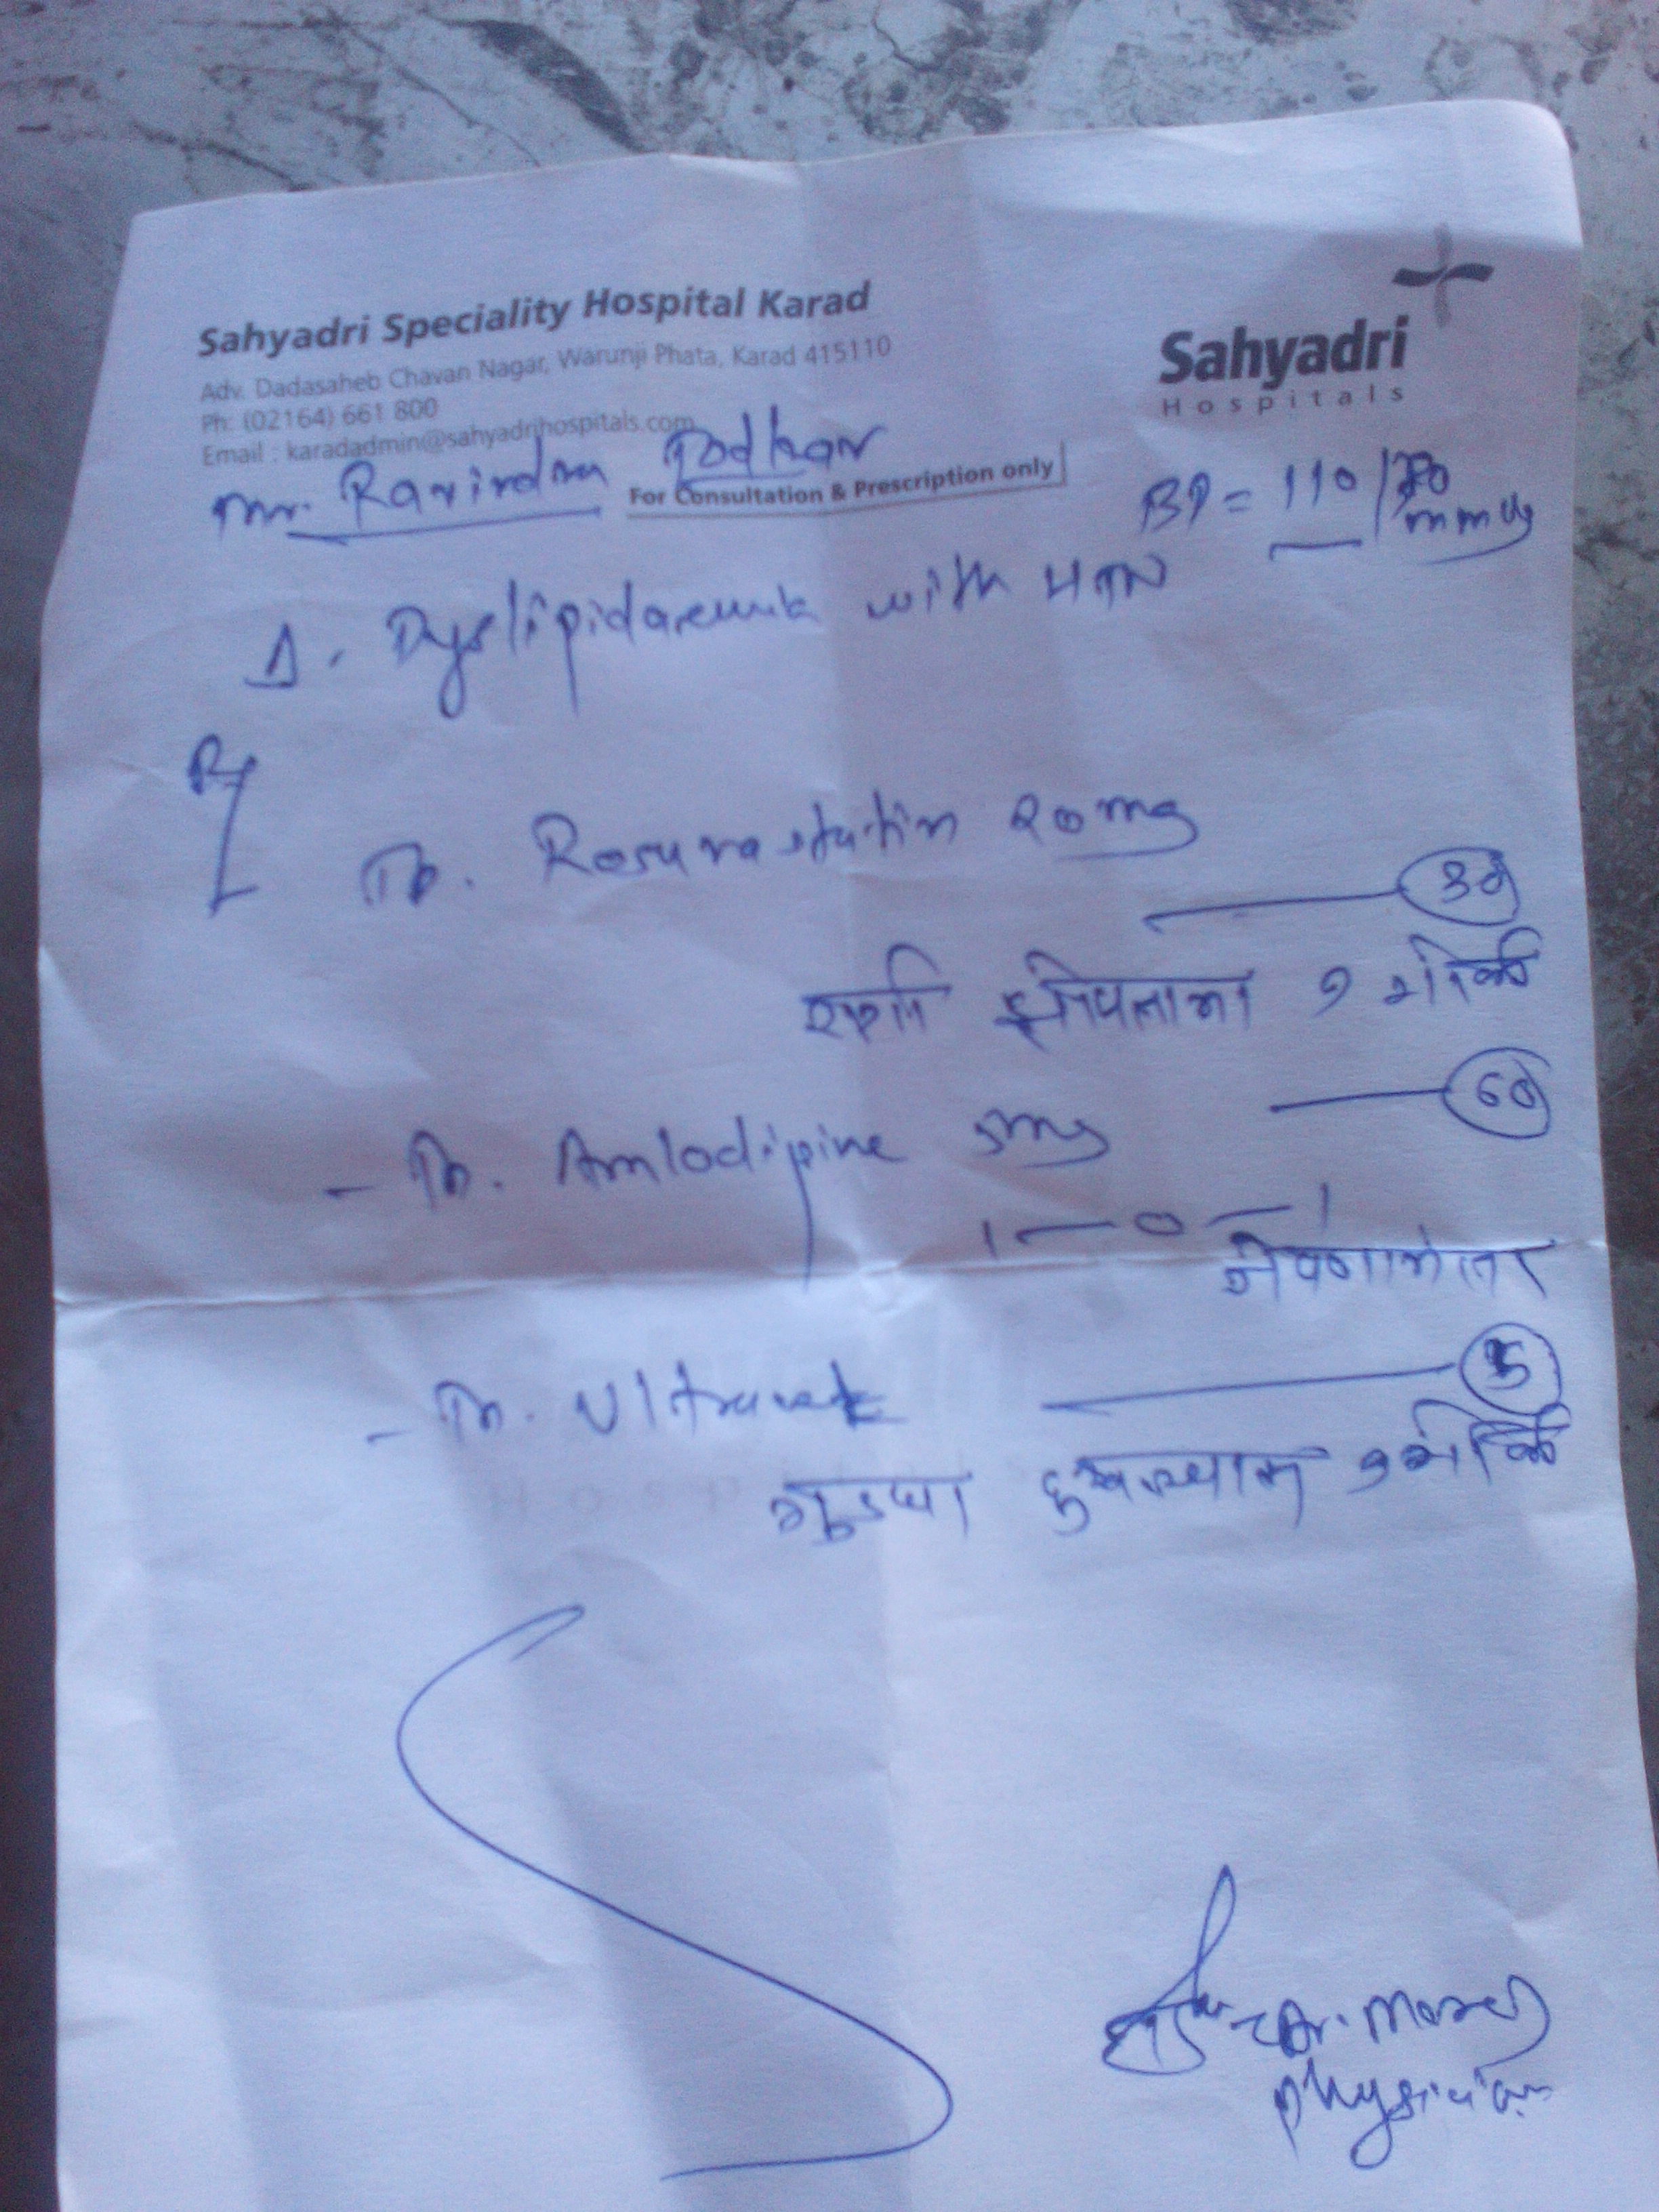 Sahyadri Speciality Hospital Karad
Adv. Dadasaheb Chavan Nagar, Warunji Phata, Karad 415110
Ph: (02164) 661 800
Email : karadadmin@sahyadrihospitals.com
Sahyadri
Hospitals
For Consultation & Prescription only
Mr. Ravindra
BP = 110 /
mmHg
Δ. Dyslipidaemia with HTN
Rx
Tb. Rosuvastatin 20mg
30
रात्री झोपताना १ गोळी
- Tb. Amlodipine 5mg
60
1 — 0 — 1
जेवणानंतर
- Tb.
5
दुखल्यास १ गोळी
Dr. More
Physician